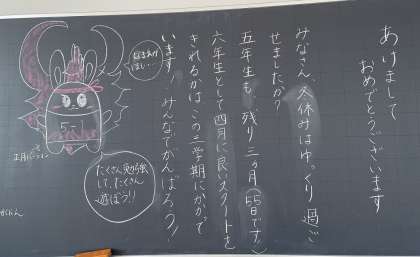 あけまして
おめでとうございます
みなさん、冬休みはゆっくり過ご
せましたか?
五年生も、残り三ヶ月(55日です。)
六年生として四月に良いスタートを
きれるかはこの三学期にかかって
います!みんなでがんばろう!!
なまあげ
はし…
5-1
お正月バージョン
たくさん勉強
して、たくさん
遊ぼう!!